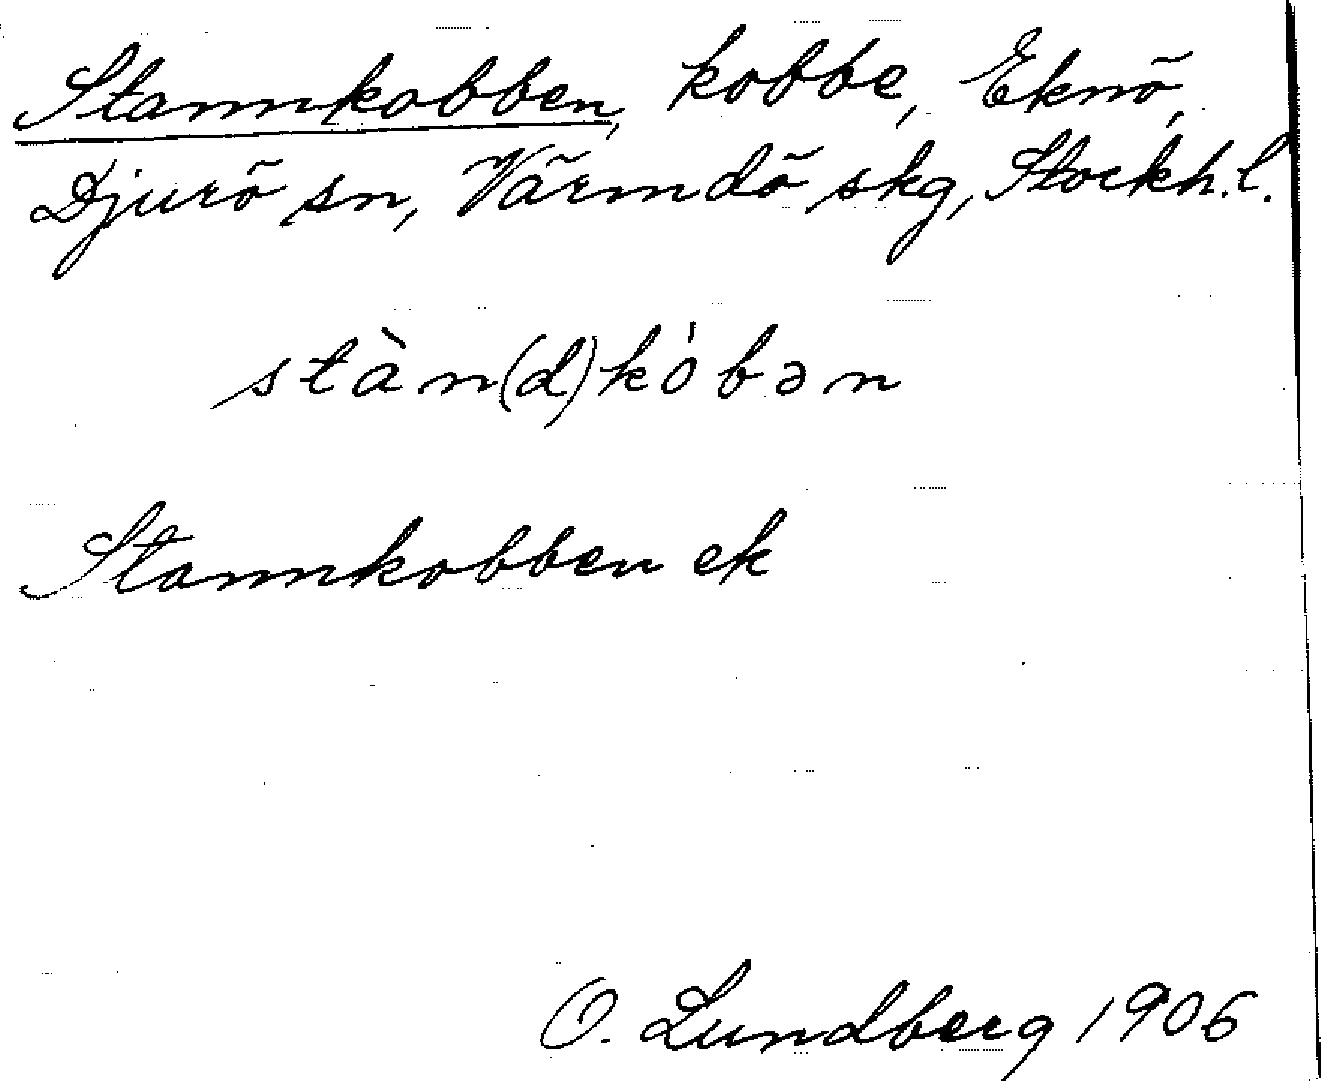 Stannkobben, kobbe, Eknö,
Djurö sn, Värmdö skg, Stockh.l.
stàn(d)kȯ́bən
Stannkobben ek
O. Lundberg 1906